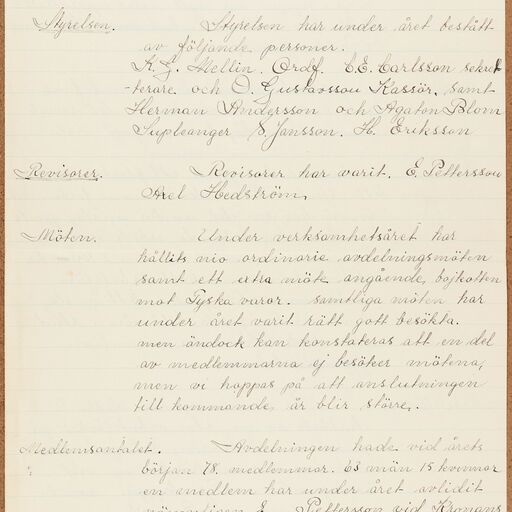 Styrelsen. Styrelsen har under året bestått
av följande personer.
K. G. Hellin. Ordf. C.E. Carlsson sekre
-terare och O. Gustavsson Kassör, samt
Herman Andersson och Agaton Blom
Supleanger S. Jansson. H. Eriksson
Revisorer. Revisorer har varit. E. Pettersson
Axel Hedström,
Möten. Under verksamhetsåret har
hållits nio ordinarie avdelningsmöten
samt ett extra möte angående, bojkotten
mot Tyska varor. samtliga möten har
under året varit rätt gott besökta.
men ändock kan konstateras att en del
av medlemmarna ej besöker mötena,
men vi hoppas på att anslutningen
till kommande år blir större,.
Medlemsantalet. Avdelningen hade vid årets
början 78. medlemmar. 63 män 15 kvinnor
en medlem har under året avlidit
nämligen E. Pettersson vid Kronans